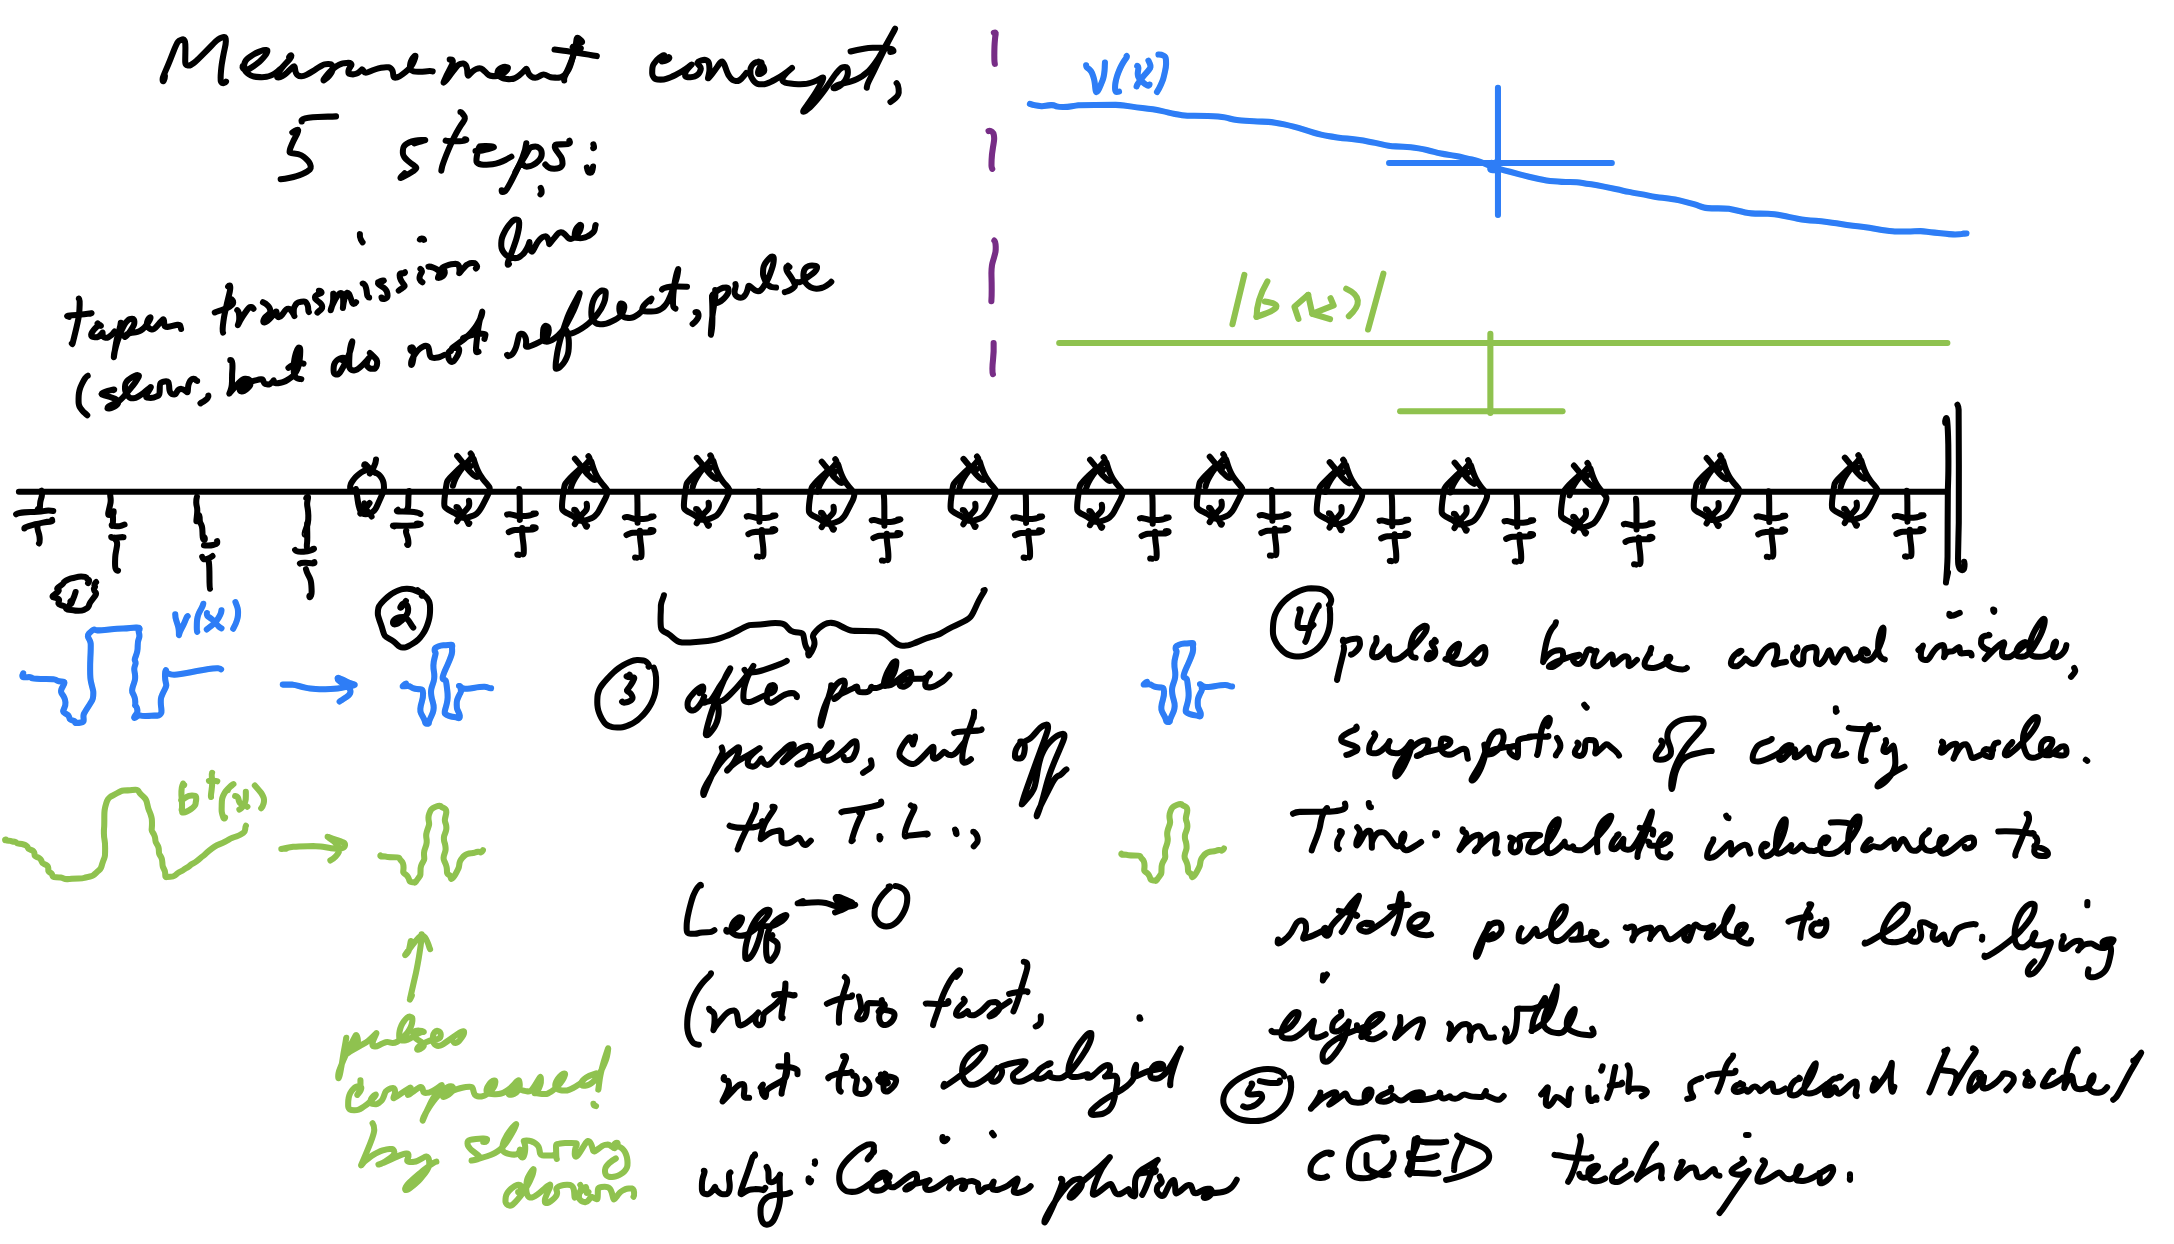 Measurement concept,
5 steps:
taper transmission line
(slow, but do not reflect, pulse
v(x)
|b(x)|
1
v(x)
b†(x)
pulses
compressed
by slowing
down
2
3 after pulse
passes, cut off
the T.L.,
Leff → 0
(not too fast,
not too localized
why: Casimir photons
4 pulses bounce around inside,
superpotion of cavity modes.
Time-modulate inductances to
rotate pulse mode to low-lying
eigenmode
5 measure with standard Haroche/
cQED techniques.